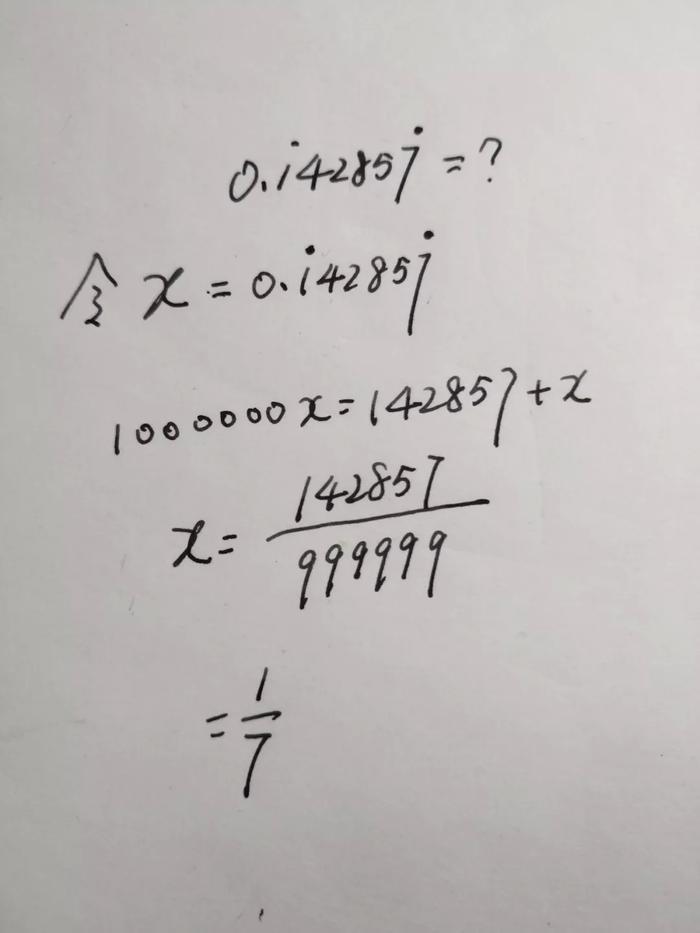 0.1̇42857̇ = ?
令 x = 0.1̇42857̇
1000000x = 142857 + x
x = 142857/999999
= 1/7